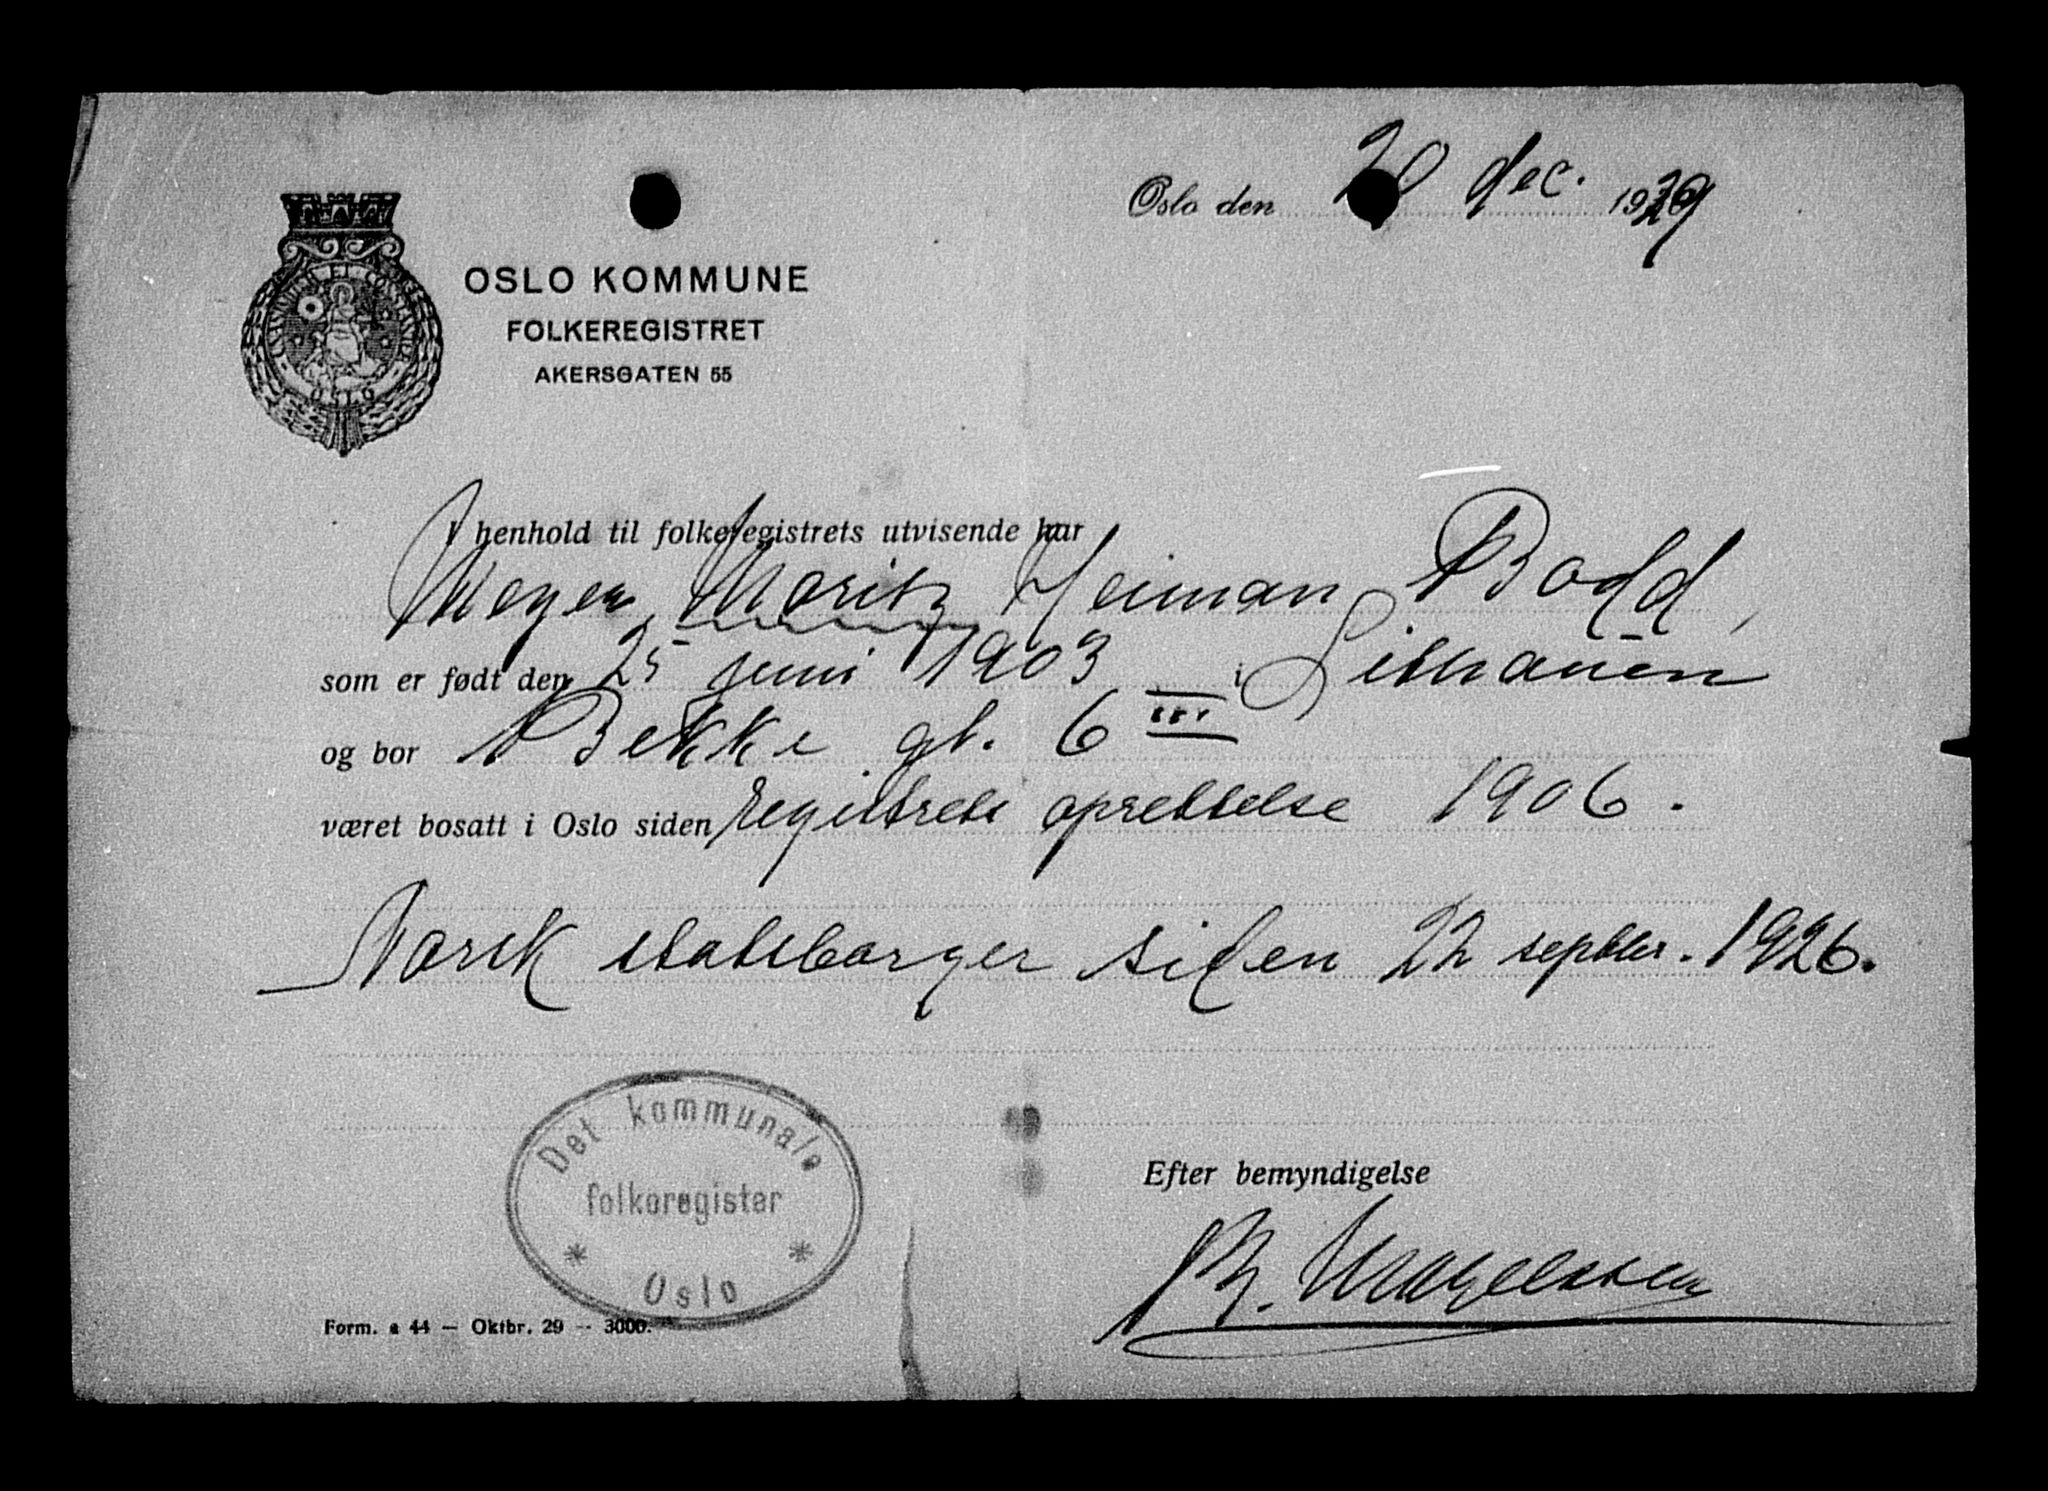 Oslo den 20 dec. 1929
UNANIMITER ET CONSTANTER
OSLO
OSLO KOMMUNE
FOLKEREGISTRET
AKERSGATEN 55
I henhold til folkeregistrets utvisende har
Meyer Moritz Heiman Bodd,
som er født den 25 juni 1903 i Lithauen
og bor Bekke gt. 6 III
været bosatt i Oslo siden registrets oprettelse 1906.
Norsk statsborger siden 22 septbr. 1926.
Det kommunale
folkeregister
* Oslo *
Efter bemyndigelse
Form. a 44 — Oktbr. 29 — 3000.